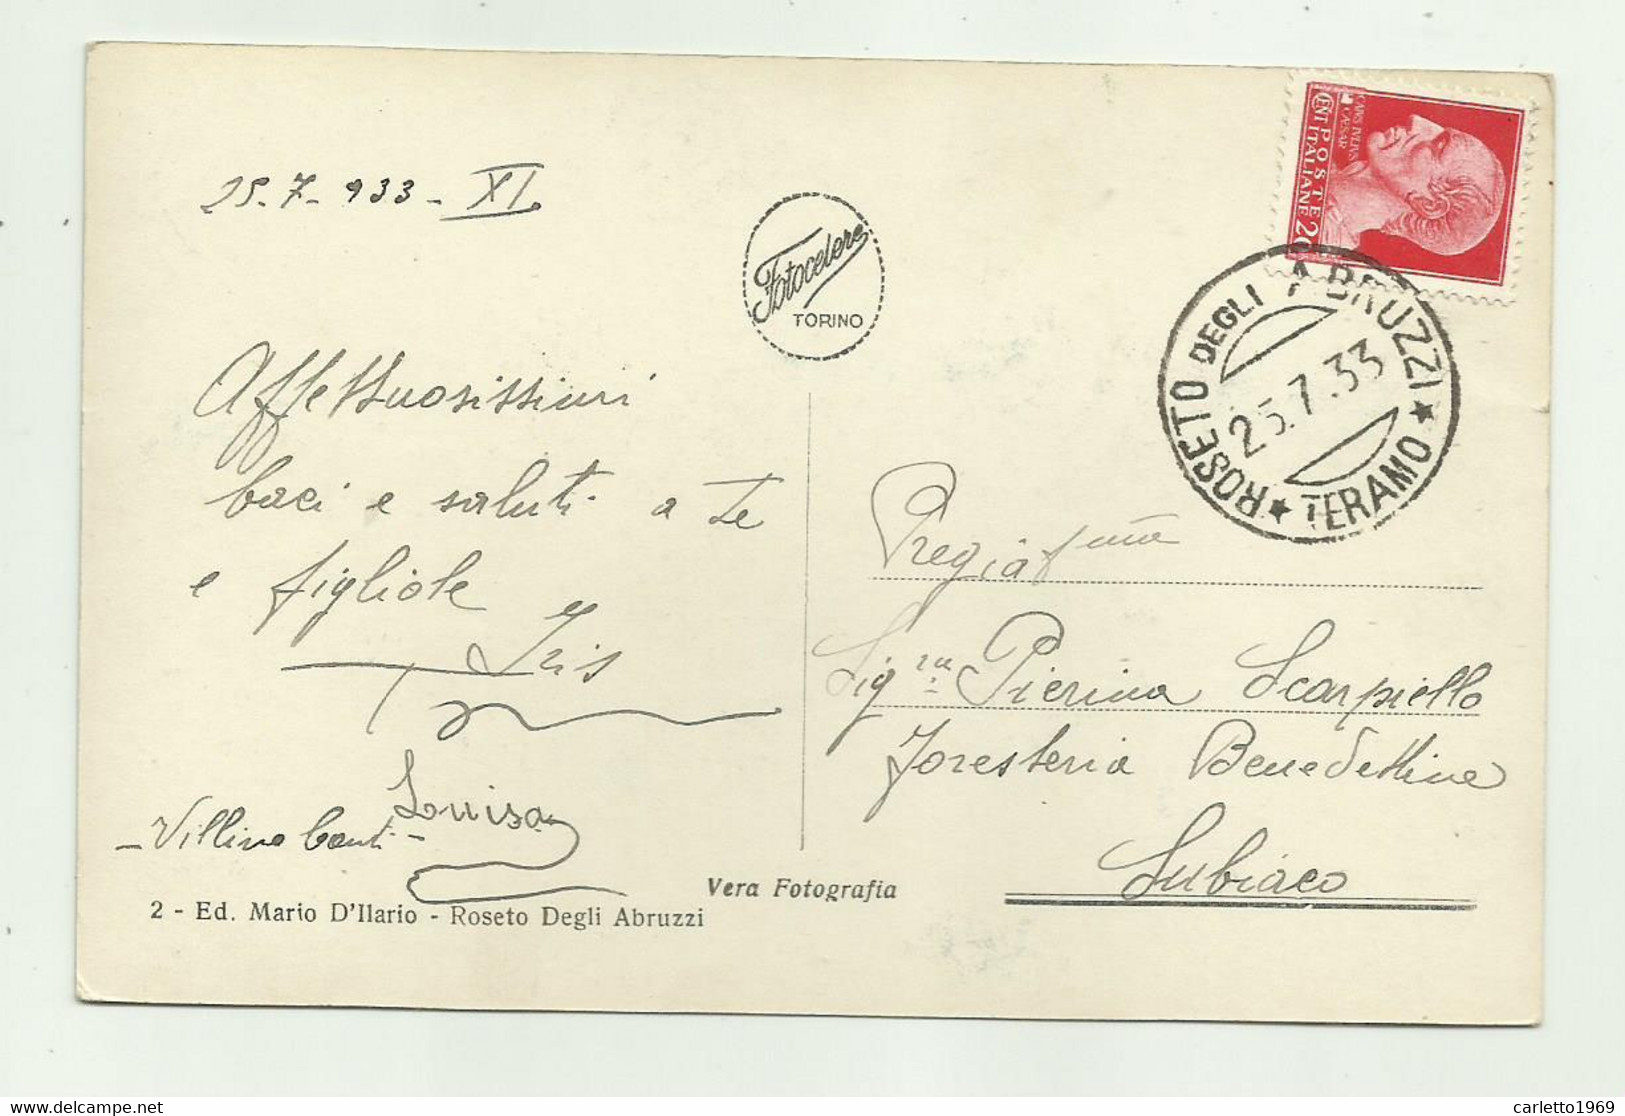 25-7-933-XI
Fotocelere
TORINO
CENT POSTE 20
ITALIANE
CAIVS IVLIVS
CAESAR
ROSETO DEGLI ABRUZZI
25.7.33
★ TERAMO ★
Affettuosissimi
baci e saluti a te
e figliole
Iris
Luisa
- Villino Conti -
Pregiatma
Sigra Pierina Scarpiello
Foresteria Benedettine
Subiaco
Vera Fotografia
2 - Ed. Mario D'Ilario - Roseto Degli Abruzzi
delcampe.net
carletto1969